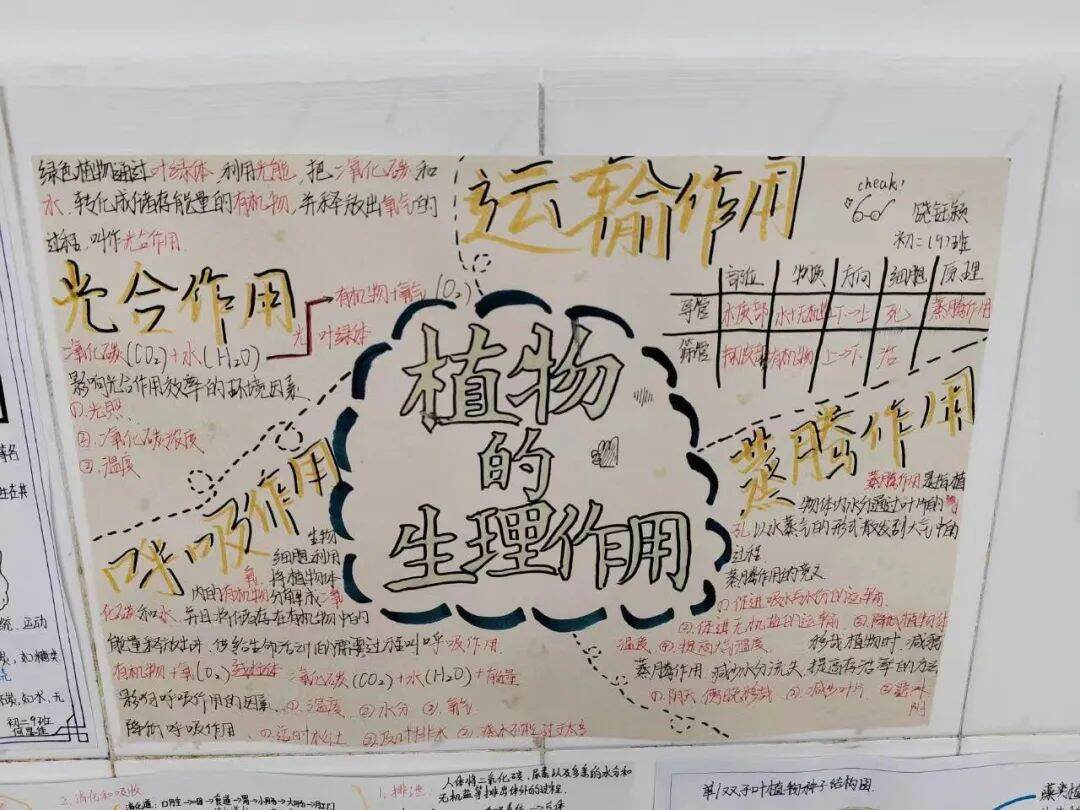 绿色植物通过叶绿体,利用光能,把二氧化碳和
水,转化成储存能量的有机物,并释放出氧气的
过程,叫作光合作用
光合作用
有机物+氧气(O₂)
光 叶绿体
二氧化碳(CO₂)+水(H₂O)
影响光合作用效率的环境因素
①光照
②二氧化碳浓度
③温度
运输作用
cheak!
初二(9)班
部位 物质 方向 细胞 原理
导管 木质部 水+无机盐 下→上 死 蒸腾作用
筛管 韧皮部 有机物 上→下 活
植物
的
生理作用
呼吸作用
生物
细胞利用
氧,将植物体
内的有机物分解成二氧
化碳和水,并且将储存在有机物中的
能量释放出来,供给生命活动的需要过程叫呼吸作用
有机物+氧(O₂) 二氧化碳(CO₂)+水(H₂O)+能量
影响呼吸作用的因素 ①温度 ②水分 ③氧气
降低呼吸作用 ①适时松土 ②及时排水
蒸腾作用
蒸腾作用是指植
物体内水分通过叶片的气
孔以水蒸气的形式散发到大气中的
过程
蒸腾作用的意义
①促进吸水与水分的运输
②促进无机盐的运输 ③降低植物叶片
温度 ④提高大气湿度
移栽植物时,减弱
蒸腾作用 减少水分流失,提高存活率的方法
①阴天、傍晚移栽 ②减少叶片 ③遮阳
初二9班
统、运动
2.消化和吸收
1.排泄
人体将二氧化碳、尿素以及多余的水分和
无机盐等排出体外的过程
单/双子叶植物种子结构图